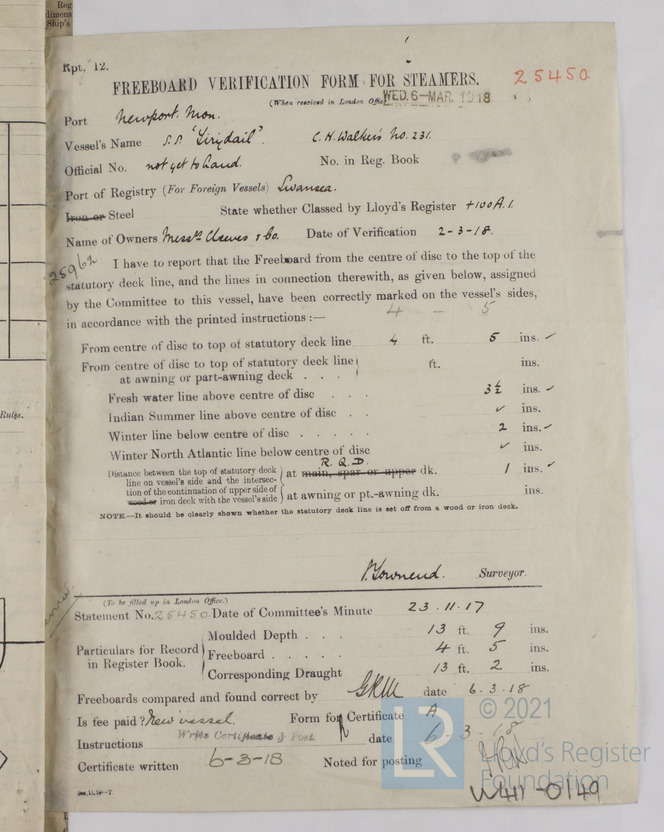 Reg
dimens
Ship's
Rpt. 12.
FREEBOARD VERIFICATION FORM FOR STEAMERS.
25450
(When received in London Office) WED. 6-MAR. 1918
Port Newport. Mon.
Vessel's Name S.S. C.H. Walker's No. 231.
Official No. not yet to hand. No. in Reg. Book
Port of Registry (For Foreign Vessels) Swansea.
Iron or Steel State whether Classed by Lloyd's Register +100A.1.
Name of Owners Messrs & Co. Date of Verification 2-3-18.
25962
I have to report that the Freeboard from the centre of disc to the top of the
statutory deck line, and the lines in connection therewith, as given below, assigned
by the Committee to this vessel, have been correctly marked on the vessel's sides,
in accordance with the printed instructions :— 4 - 5
From centre of disc to top of statutory deck line 4 ft. 5 ins. ✓
From centre of disc to top of statutory deck line
at awning or part-awning deck . . . ft. ins.
Fresh water line above centre of disc . . . 3½ ins. ✓
Indian Summer line above centre of disc . . ✓ ins.
Winter line below centre of disc . . . . . 2 ins. ✓
Winter North Atlantic line below centre of disc ✓ ins.
Rules.
Distance between the top of statutory deck
line on vessel's side and the intersec-
tion of the continuation of upper side of
wood or iron deck with the vessel's side
R.Q.D.
at main, spar or upper dk. 1 ins. ✓
at awning or pt.-awning dk. ins.
NOTE.—It should be clearly shown whether the statutory deck line is set off from a wood or iron deck.
P. Townend. Surveyor.
(To be filled up in London Office.)
Statement No. 25450. Date of Committee's Minute 23.11.17
Particulars for Record
in Register Book.
Moulded Depth . . . 13 ft. 9 ins.
Freeboard . . . . . 4 ft. 5 ins.
Corresponding Draught 13 ft. 2 ins.
Freeboards compared and found correct by date 6.3.18
Is fee paid? New vessel. Form for Certificate A
Instructions Write Certificate & Post date 6-3-18
Certificate written 6-3-18 Noted for posting
LR
© 2021
Lloyd's Register
Foundation
W411-0149